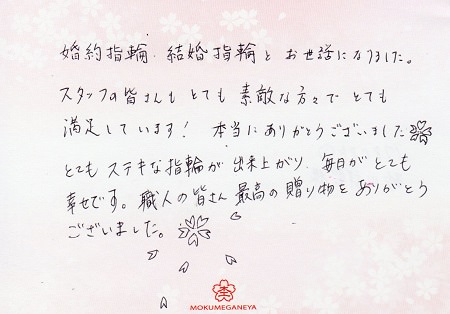 婚約指輪、結婚指輪と お世話になりました。
スタッフの皆さんも とても 素敵な方々で とても
満足しています！ 本当にありがとうございました
とても ステキな指輪が 出来上がり、毎日が とても
幸せです。職人の皆さん 最高の贈り物を ありがとう
ございました。
MOKUMEGANEYA